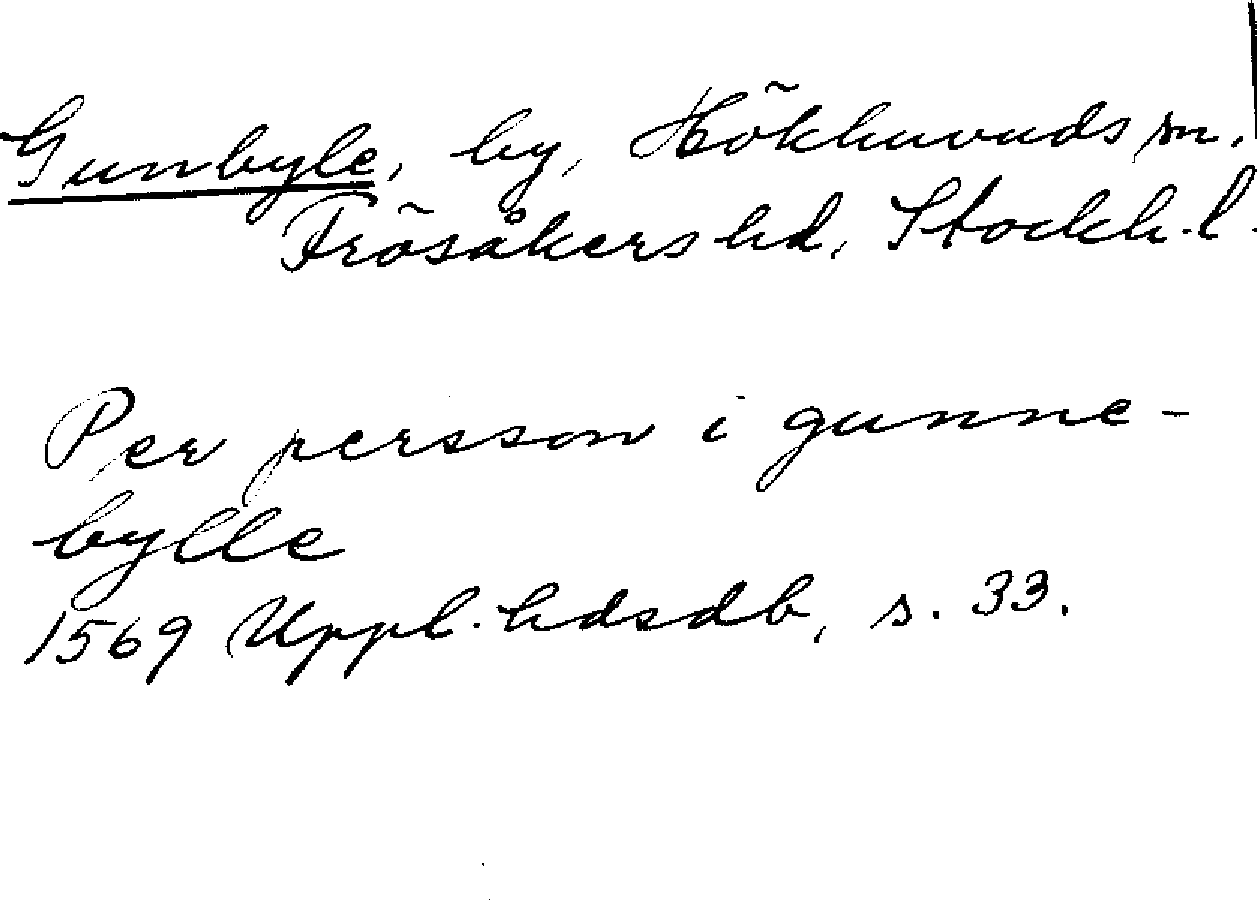 Gunbyle, by, Hökhuvuds sn.
Frösåkers hd, Stockh. l.
Per persson i gunne-
bylle
1569 Uppl. hdsdb, s. 33.